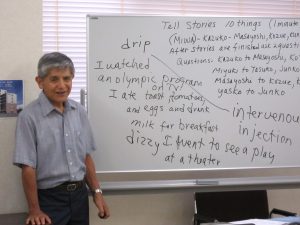 Tell Stories 10 things (1 minute
(Miwa) - Kazuko - Masayoshi, Kozue, Kun
After stories are finished ask 2 questi
Questions. Kazuko to Masayoshi, K
Miyuki to Yasuko, Junko
Masayoshi to Kozue, K
yasko to Junko
drip
I watched
an olympic program
on TV
I ate toast, tomatoes,
and eggs and drank
milk for breakfast
dizzy I went to see a play
at a theater
intervenou
injection